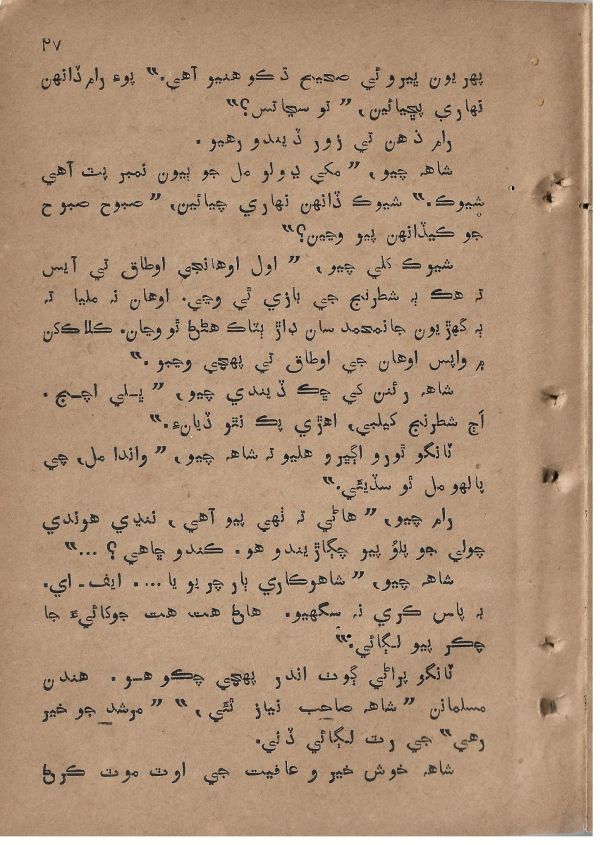 ٢٧
پھريون پيرو ئي صحيح ڌڪو هنيو آهي.“ پوءِ رام ڏانهن
نهاري پڇيائين، ”تو سڃاتس؟“
رام ذهن تي زور ڏيندو رهيو.
شاهہ چيو، ”مکي ڊولو مل جو ٻيون نمبر پٽ آهي
شيوڪ.“ شيوڪ ڏانهن نهاري چيائين، ”صبوح صبوح
جو ڪيڏانهن پيو وڃين؟“
شيوڪ کلي چيو، ”اول اوهانجي اوطاق تي آيس
تہ هڪ ٻہ شطرنج جي بازي ٿي وڃي. اوهان نہ مليا تہ
ٻہ گهڙيون جانمحمد سان ڊاڙ ٻٽاڪ هڻڻ ٿو وڃان. ڪلاڪن
۾ واپس اوهان جي اوطاق تي پهچي وڃبو.“
شاهہ رئنن کي ڇڪ ڏيندي چيو، ”ڀلي اچج.
اڄ شطرنج کيلبي، اهڙي پڪ نٿو ڏيانءِ.“
ٽانگو ٿورو اڳيرو هليو تہ شاهہ چيو، ”واندا مل، جي
پالهو مل ٿو سڏيئي.“
رام چيو، ”هاڻي تہ ٺهي پيو آهي، ننڍي هوندي
چولي جو پلؤ پيو چٻاڙيندو هو. ڪندو ڇاهي؟ ...“
شاهہ چيو، ”شاهوڪاري ٻار چريو يا .... ايف۔ اي.
بہ پاس ڪري نہ سگهيو. هاڻ هٿ هٿ جوڪائيءَ جا
چڪر پيو لڳائي.“
ٽانگو پراڻي ڳوٺ اندر پهچي چڪو هو. هندن
مسلمانن ”شاهہ صاحب نياز ٿئي،“ ”مرشد جو خير
رهي“ جي رٽ لڳائي ڏني.
شاهہ خوش خير و عافيت جي اوٽ موٽ ڪرڻ